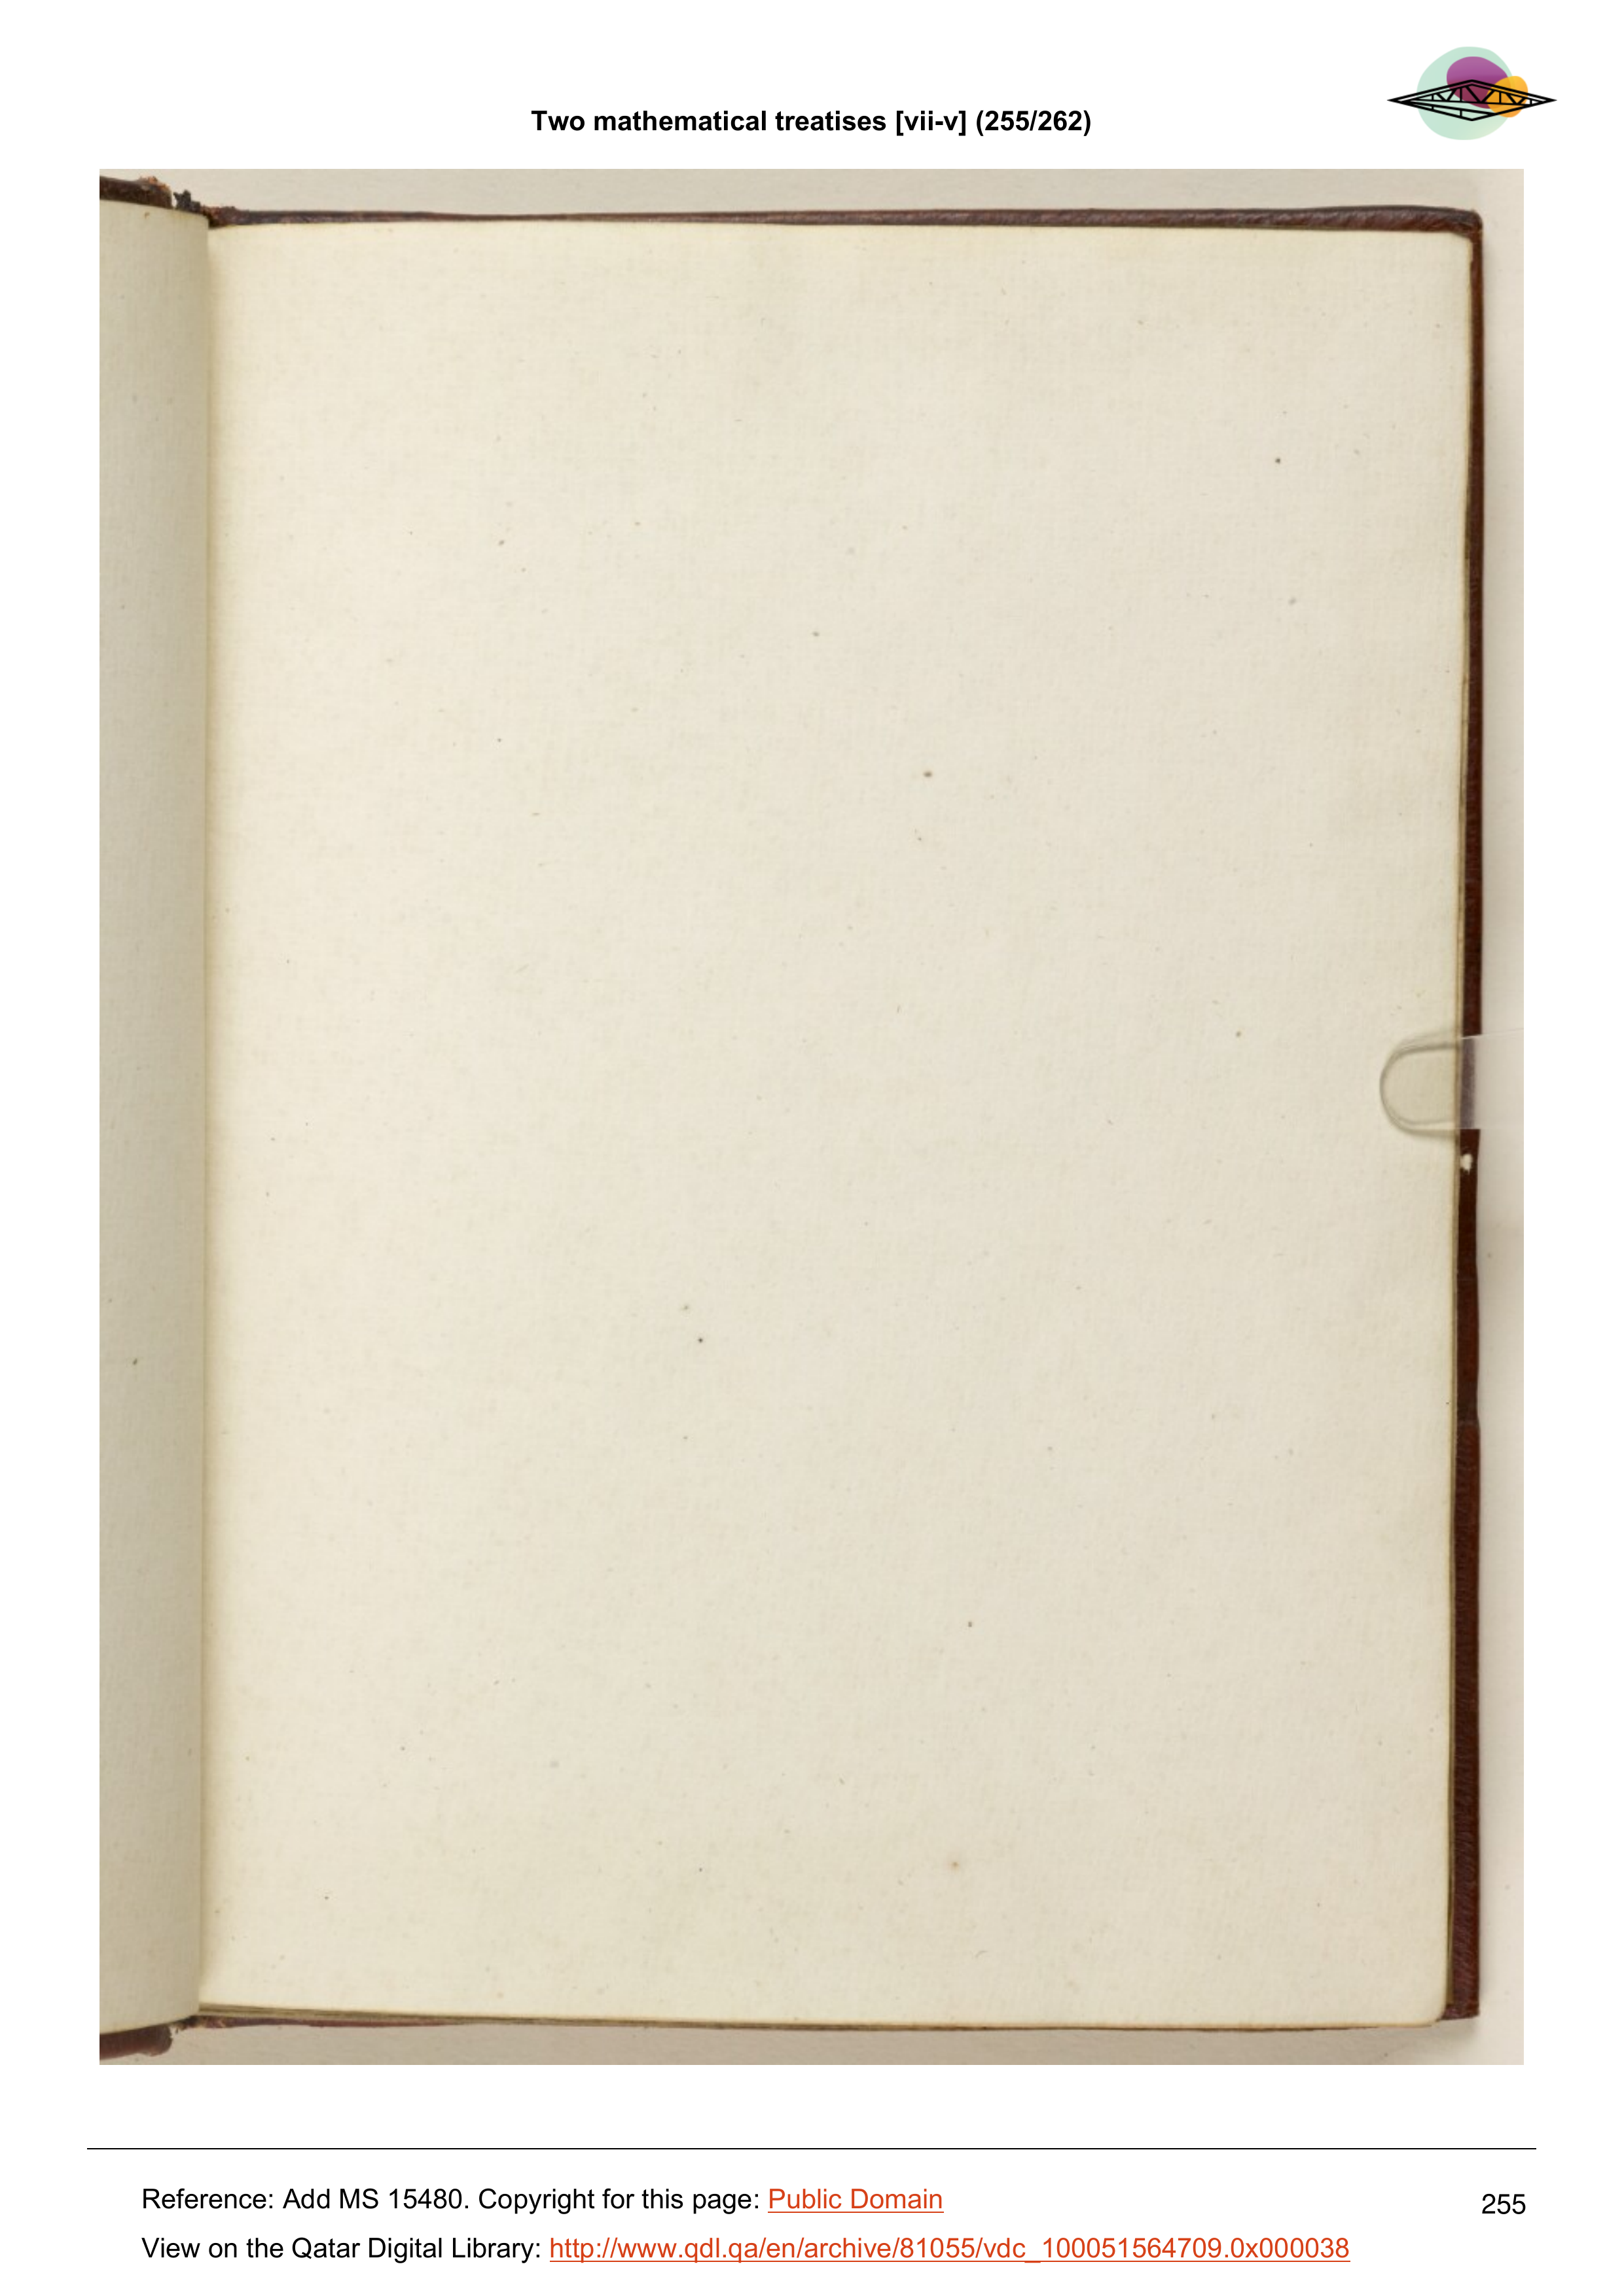 Two mathematical treatises [vii-v] (255/262)
Reference: Add MS 15480. Copyright for this page: Public Domain
255
View on the Qatar Digital Library: http://www.qdl.qa/en/archive/81055/vdc_100051564709.0x000038